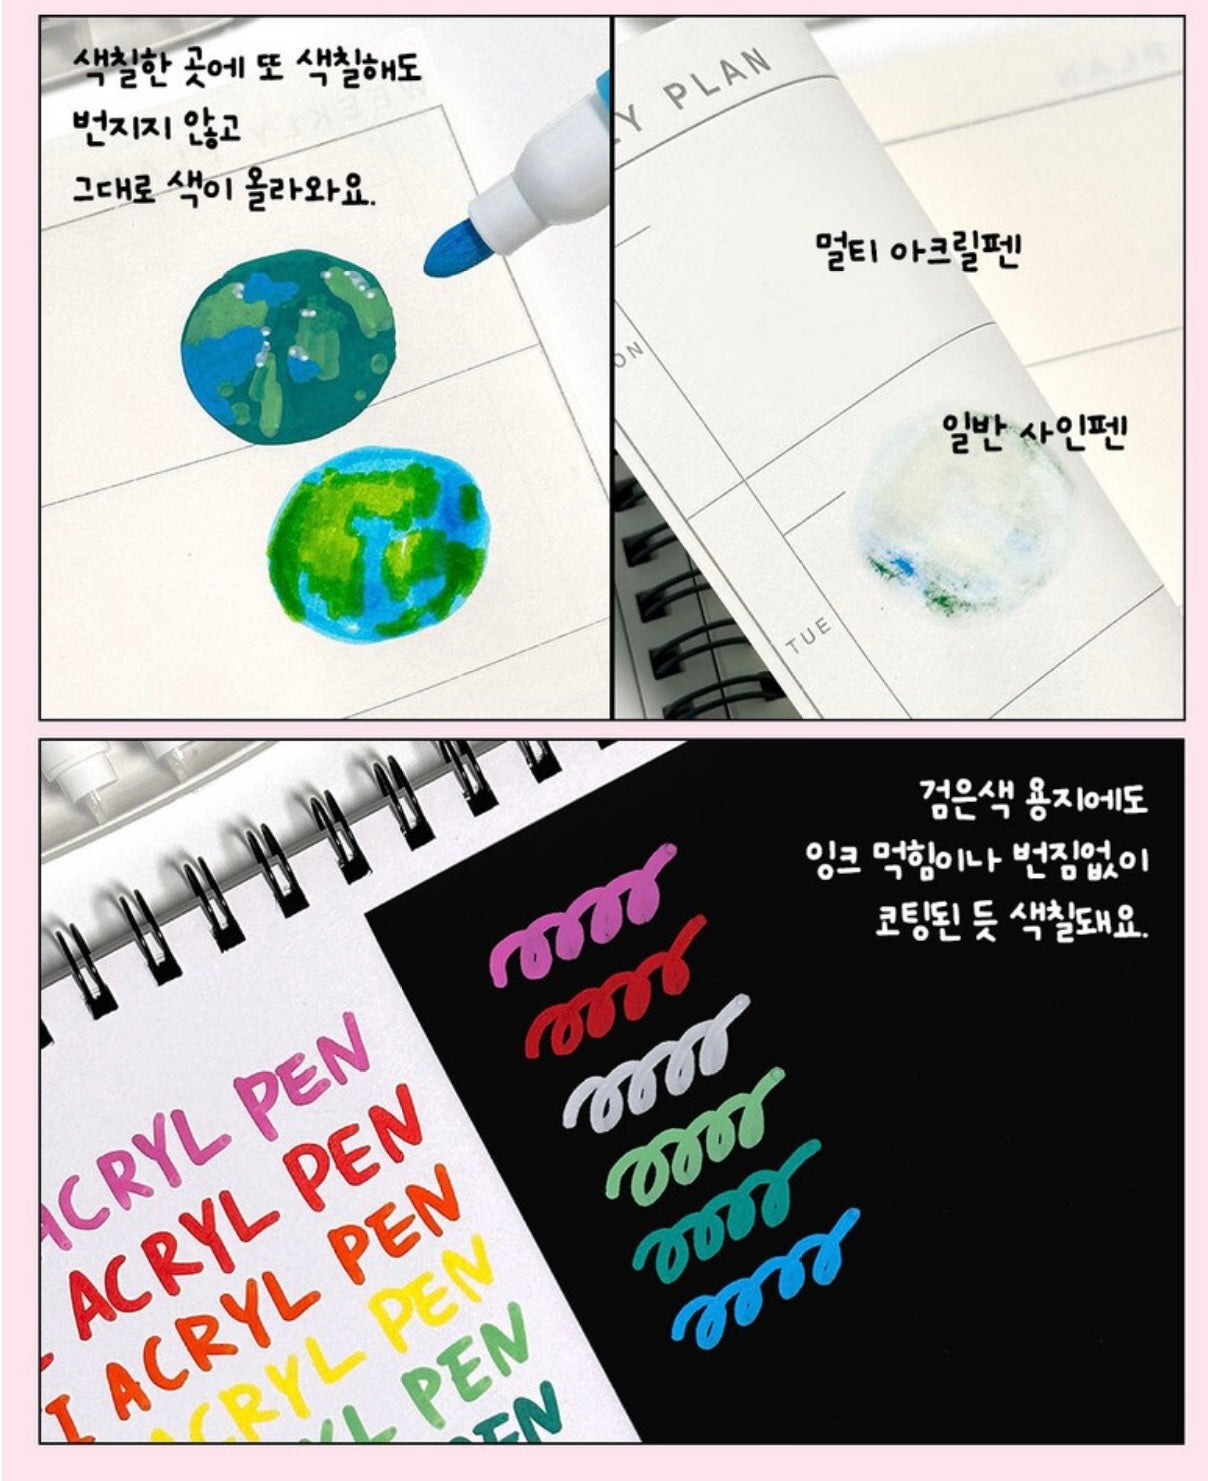 색칠한 곳에 또 색칠해도
번지지 않고
그대로 색이 올라와요.
Y PLAN
멀티 아크릴펜
ON
일반 사인펜
TUE
검은색 용지에도
잉크 먹힘이나 번짐없이
코팅된 듯 색칠돼요.
ACRYL PEN
ACRYL PEN
I ACRYL PEN
ACRYL PEN
YL PEN
PEN